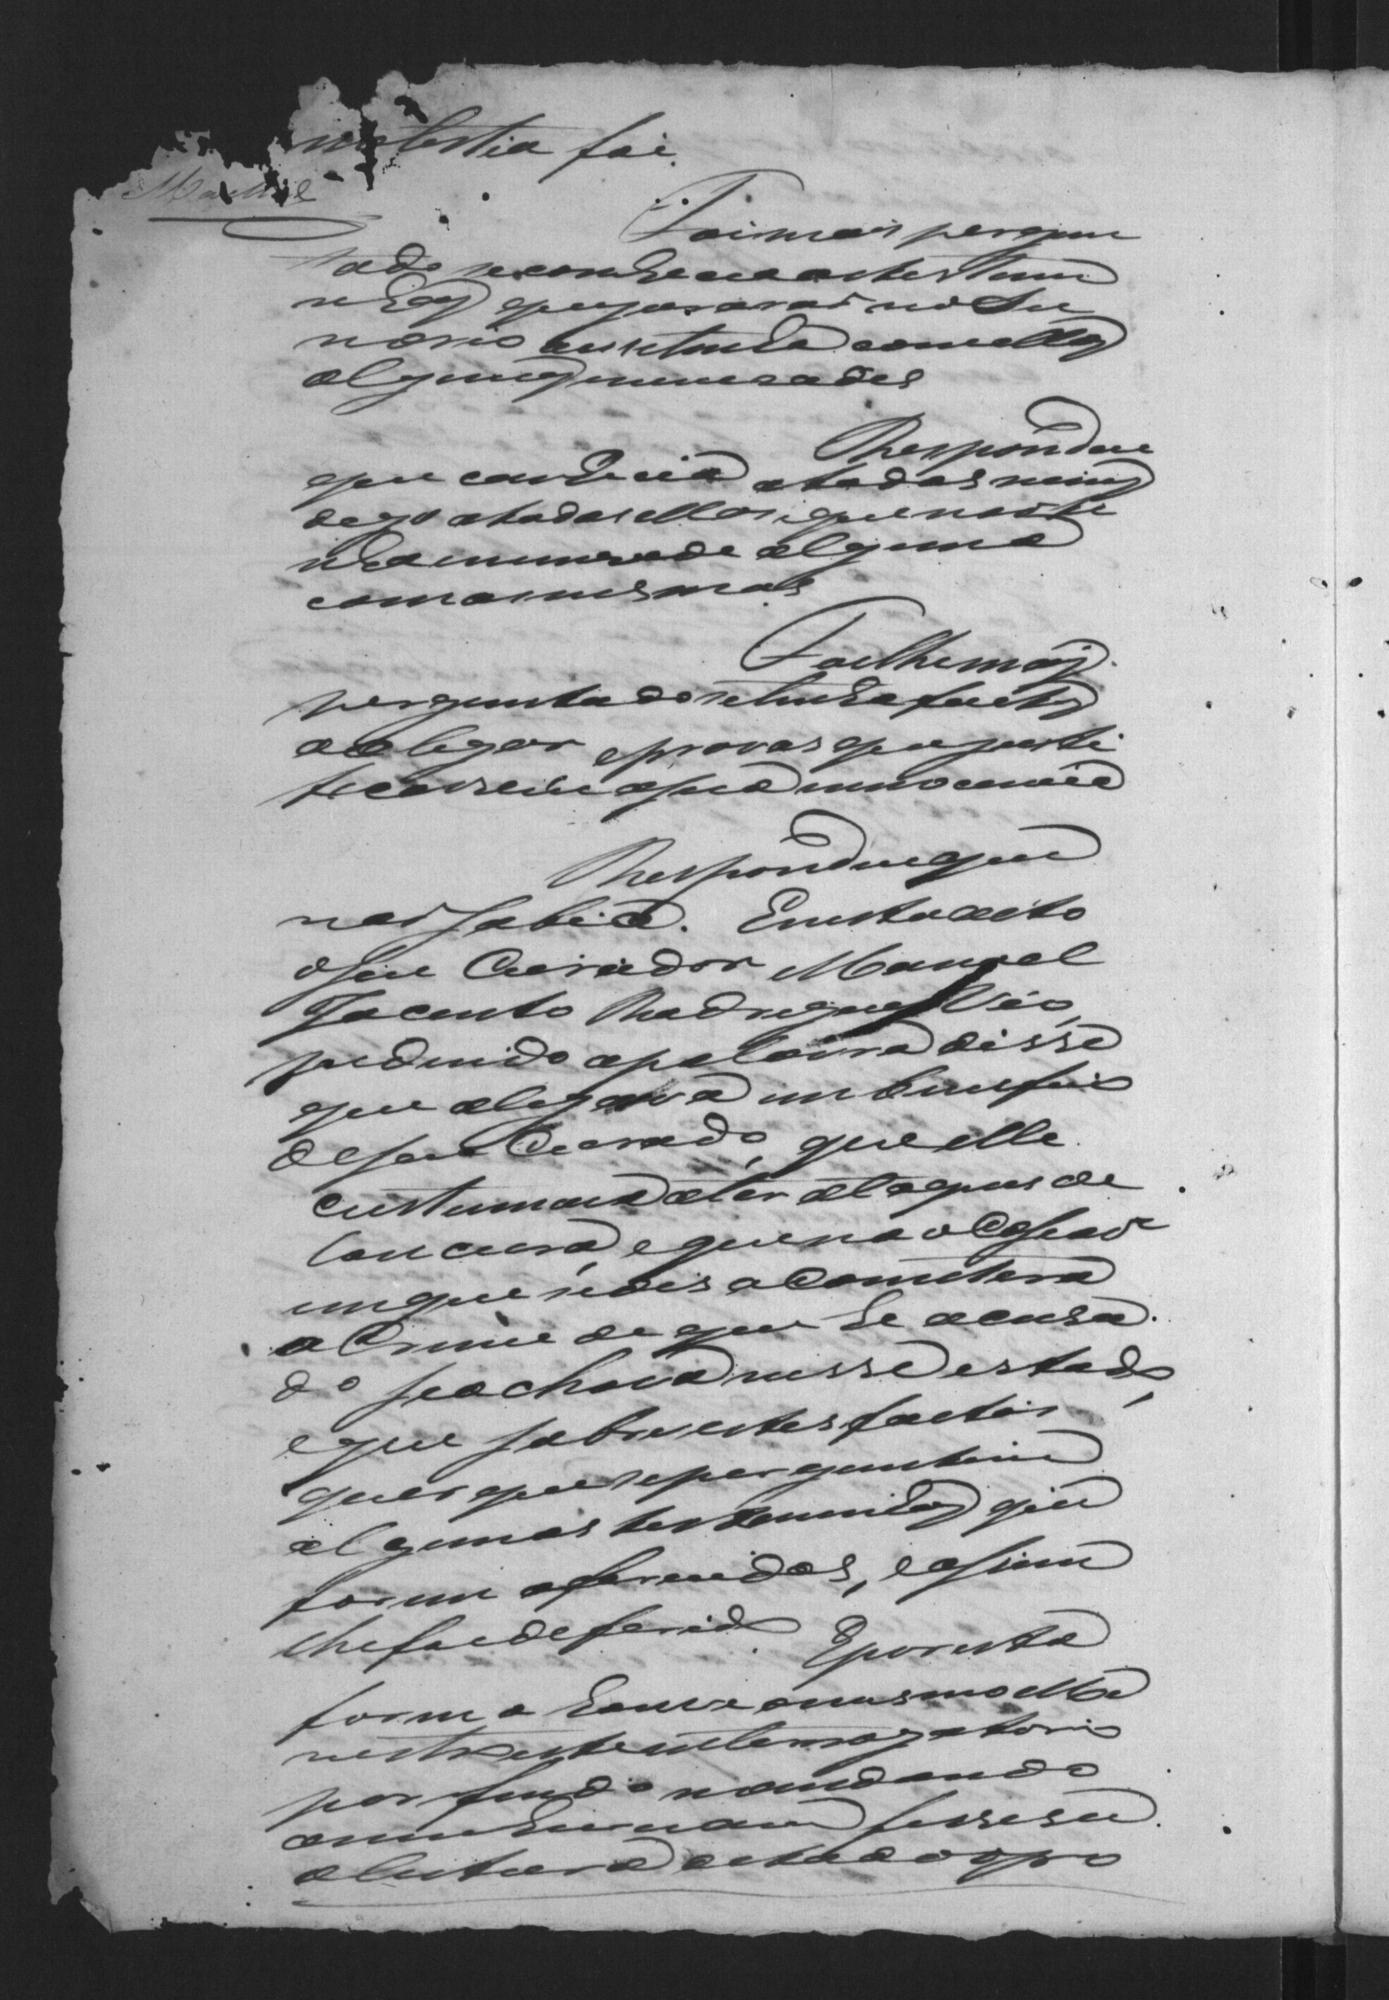 molestia foi.
Foi mais pergun
tado se conhecia as testemu
nhas que juraraõ no Su
mario, ou se tinha com ellas
algumas inimisades
Respondeu
que conhecia a todas
digo a todas ellas, e que naõ ti
nha inimisade alguma
com as mesmas
Foi lhe mais
perguntado se tinha factos
a alegar e provas que justi
ficassem a sua innocencia
Respondeu que
naõ sabia. Em to acto
o seu Curador Manoel
Jacinto Rodrigues Véo,
pedindo a palavra disse
que alegava em beneficio
de seu Curado, que elle
custumava a ter ataques de
loucura, e que na occasiaõ
em que se dis a Cometera
o Crime de que he acusa
do se achava nesse estado,
e que sobre estes factos
quer que se perguntem
algumas testemunhas que
forem oferecidas, e assim
lhe foi deferido. E por esta
forma houve o mesmo Me
retissimo este interrogatorio
por findo mandando
a mim Escrivam fisesse
a leitura de todo o pro